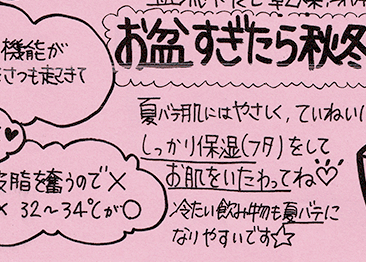 お盆すぎたら秋冬
機能が
さつも起きて
夏バテ肌にはやさしく,ていねいに
しっかり保湿(フタ)をして
お肌をいたわってね♡
皮脂を奪うので×
× 32〜34℃が○
冷たい飲み物も夏バテに
なりやすいです☆